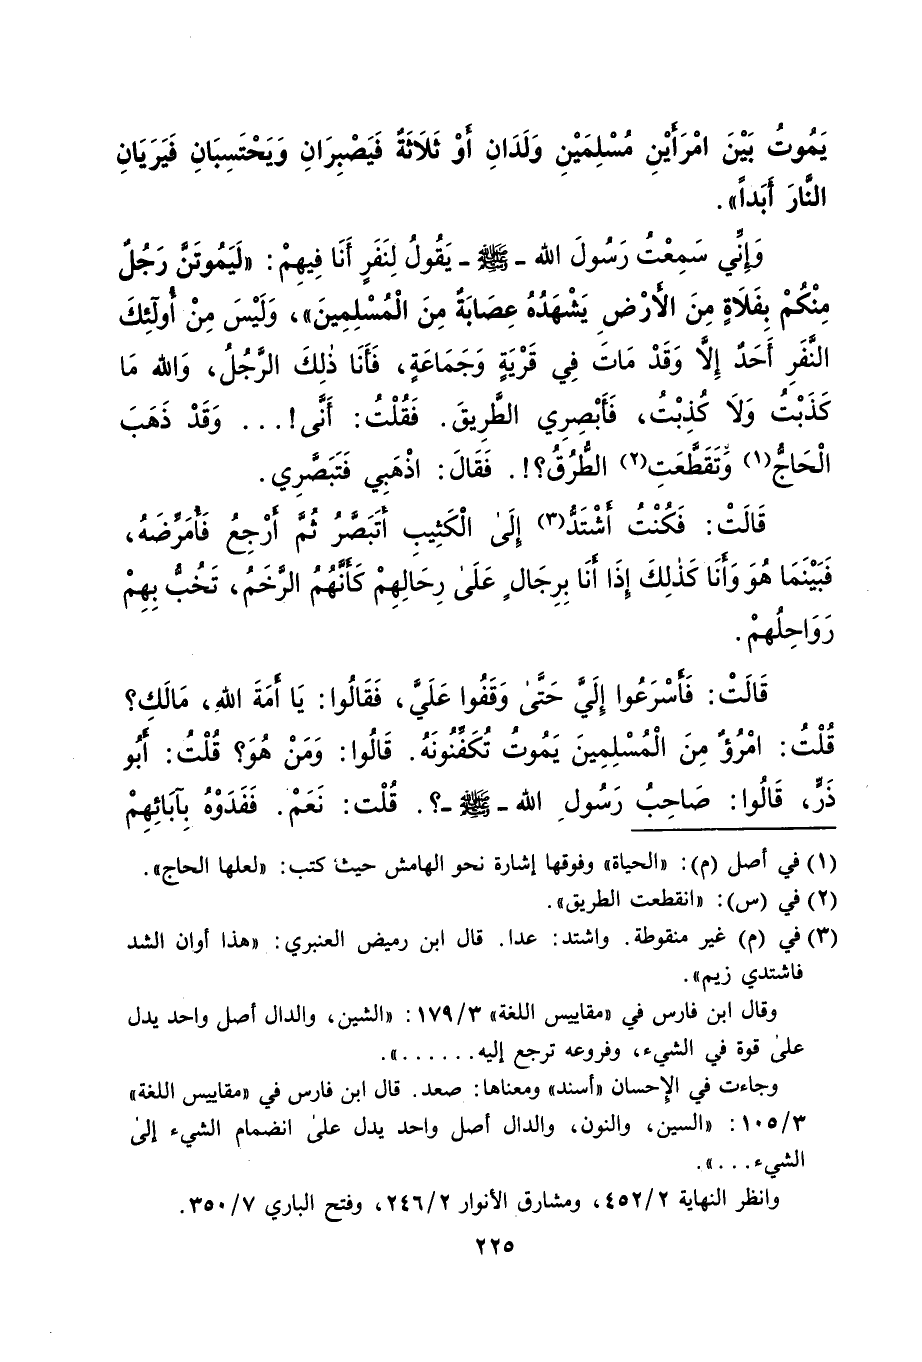 يَمُوتُ بَيْنَ امْرَأَيْنِ مُسْلِمَيْنِ وَلَدَانِ أَوْ ثَلَاثَةٌ فَيَصْبِرَانِ وَيَحْتَسِبَانِ فَيَرَيَانِ
النَّارَ أَبَداً».
وَإِنِّي سَمِعْتُ رَسُولَ الله - ﷺ - يَقُولُ لِنَفَرٍ أَنَا فِيهِمْ: «لَيَمُوتَنَّ رَجُلٌ
مِنْكُمْ بِفَلَاةٍ مِنَ الأَرْضِ يَشْهَدُهُ عِصَابَةٌ مِنَ الْمُسْلِمِينَ»، وَلَيْسَ مِنْ أُولَئِكَ
النَّفَرِ أَحَدٌ إِلَّا وَقَدْ مَاتَ فِي قَرْيَةٍ وَجَمَاعَةٍ، فَأَنَا ذٰلِكَ الرَّجُلُ، وَالله مَا
كَذَبْتُ وَلَا كُذِبْتُ، فَأَبْصِرِي الطَّرِيقَ. فَقُلْتُ: أَنَّى!... وَقَدْ ذَهَبَ
الْحَاجُّ(١) وَتَقَطَّعَتِ(٢) الطُّرُقُ؟!. فَقَالَ: اذْهَبِي فَتَبَصَّرِي.
قَالَتْ: فَكُنْتُ أَشْتَدُّ(٣) إِلَىٰ الْكَثِيبِ أَتَبَصَّرُ ثُمَّ أَرْجِعُ فَأُمَرِّضَهُ،
فَبَيْنَمَا هُوَ وَأَنَا كَذٰلِكَ إِذَا أَنَا بِرِجَالٍ عَلَىٰ رِحَالِهِمْ كَأَنَّهُمُ الرَّخَمُ، تَخُبُّ بِهِمْ
رَوَاحِلُهمْ.
قَالَتْ: فَأَسْرَعُوا إِلَيَّ حَتَّىٰ وَقَفُوا عَلَيَّ، فَقَالُوا: يَا أَمَةَ اللهِ، مَالَكِ؟
قُلْتُ: امْرُؤٌ مِنَ الْمُسْلِمِينَ يَمُوتُ تُكَفِّنُونَهُ. قَالُوا: وَمَنْ هُوَ؟ قُلْتُ: أَبُو
ذَرٍّ، قَالُوا: صَاحِبُ رَسُولِ الله - ﷺ -؟. قُلْت: نَعَمْ. فَفَدَوْهُ بِآبَائِهِمْ
(١) في أصل (م): «الحياة» وفوقها إشارة نحو الهامش حيث كتب: «لعلها الحاج».
(٢) في (س): «انقطعت الطريق».
(٣) في (م) غير منقوطة. واشتد: عدا. قال ابن رميض العنبري: «هذا أوان الشد
فاشتدي زيم».
وقال ابن فارس في «مقاييس اللغة» ١٧٩/٣: «الشين، والدال أصل واحد يدل
علىٰ قوة في الشيء، وفروعه ترجع إليه......».
وجاءت في الإحسان «أسند» ومعناها: صعد. قال ابن فارس في «مقاييس اللغة»
١٠٥/٣: «السين، والنون، والدال أصل واحد يدل علىٰ انضمام الشيء إلىٰ
الشيء...».
وانظر النهاية ٤٥٢/٢، ومشارق الأنوار ٢٤٦/٢، وفتح الباري ٣٥٠/٧.
٢٢٥